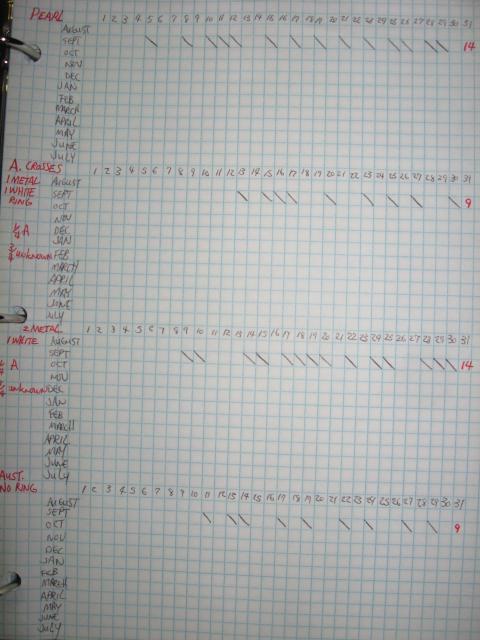 PEARL 1 2 3 4 5 6 7 8 9 10 11 12 13 14 15 16 17 18 19 20 21 22 23 24 25 26 27 28 29 30 31
AUGUST
SEPT 14
OCT
NOV
DEC
JAN
FEB
MARCH
APRIL
MAY
JUNE
JULY
A. CROSSES 1 2 3 4 5 6 7 8 9 10 11 12 13 14 15 16 17 18 19 20 21 22 23 24 25 26 27 28 29 30 31
1 METAL AUGUST
1 WHITE SEPT 9
RING OCT
NOV
1/4 A DEC
JAN
3/4 unknown FEB
MARCH
APRIL
MAY
JUNE
JULY
2 METAL 1 2 3 4 5 6 7 8 9 10 11 12 13 14 15 16 17 18 19 20 21 22 23 24 25 26 27 28 29 30 31
1 WHITE AUGUST
SEPT
A OCT 14
NOV
unknown DEC
JAN
FEB
MARCH
APRIL
MAY
JUNE
JULY
AUST. 1 2 3 4 5 6 7 8 9 10 11 12 13 14 15 16 17 18 19 20 21 22 23 24 25 26 27 28 29 30 31
NO RING
AUGUST
SEPT
OCT 9
NOV
DEC
JAN
FEB
MARCH
APRIL
MAY
JUNE
JULY